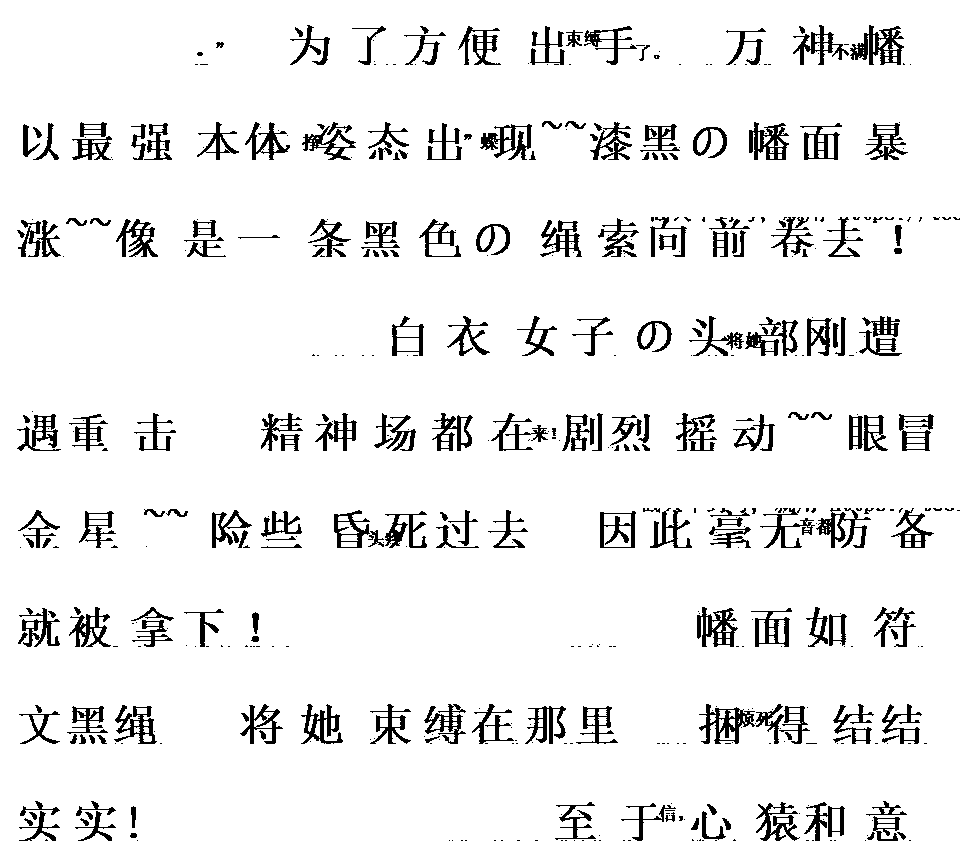 为了方便出手 万神幡
以最强本体姿态出现~~漆黑の幡面暴
涨~~像是一条黑色の绳索向前卷去！
白衣女子の头部刚遭
遇重击 精神场都在剧烈摇动~~眼冒
金星~~险些昏死过去 因此毫无防备
就被拿下！ 幡面如符
文黑绳 将她束缚在那里 捆得结结
实实！ 至于心猿和意